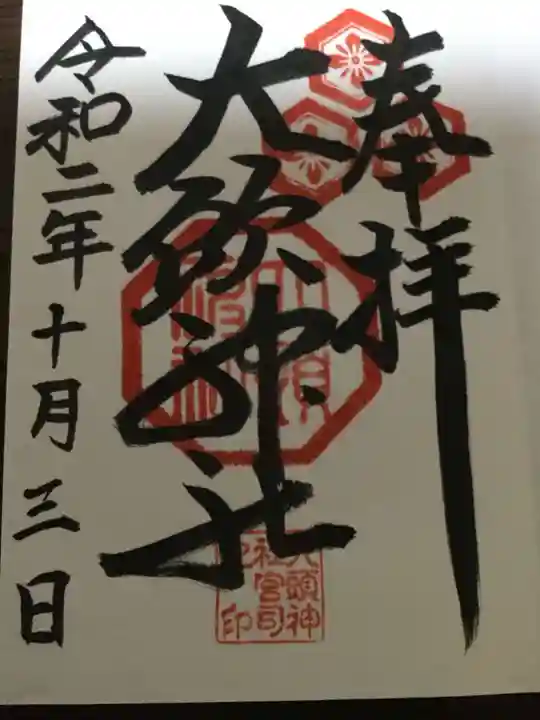 奉拝
大頭神社
令和二年十月三日
大頭神
社宮司
之印